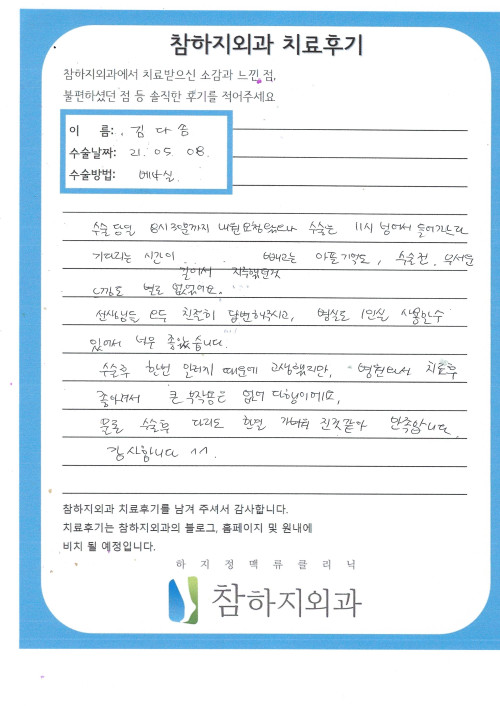 참하지외과 치료후기
참하지외과에서 치료받으신 소감과 느낀 점,
불편하셨던 점 등 솔직한 후기를 적어주세요
이 름: 김다솜
수술날짜: 21. 05. 08.
수술방법: 베나실
수술 당일 8시 30분까지 내원 요청받았으나 수술은 11시 넘어서 들어가느라
기다리는 시간이 길어서 지루했던것 빼고는 아픈기억도, 수술전 무서운
느낌도 별로 없었어요.
선생님들 모두 친절히 답변해주시고, 병실도 1인실 사용할수
있어서 너무 좋았습니다.
수술후 한번 때문에 고생했지만, 병원와서 치료후
좋아져서 큰 부작용은 없어 다행이에요,
물론 수술후 다리도 한결 가벼워 진것같아 만족합니다.
감사합니다 ^^.
참하지외과 치료후기를 남겨 주셔서 감사합니다.
치료후기는 참하지외과의 블로그, 홈페이지 및 원내에
비치 될 예정입니다.
하지정맥류클리닉
참하지외과